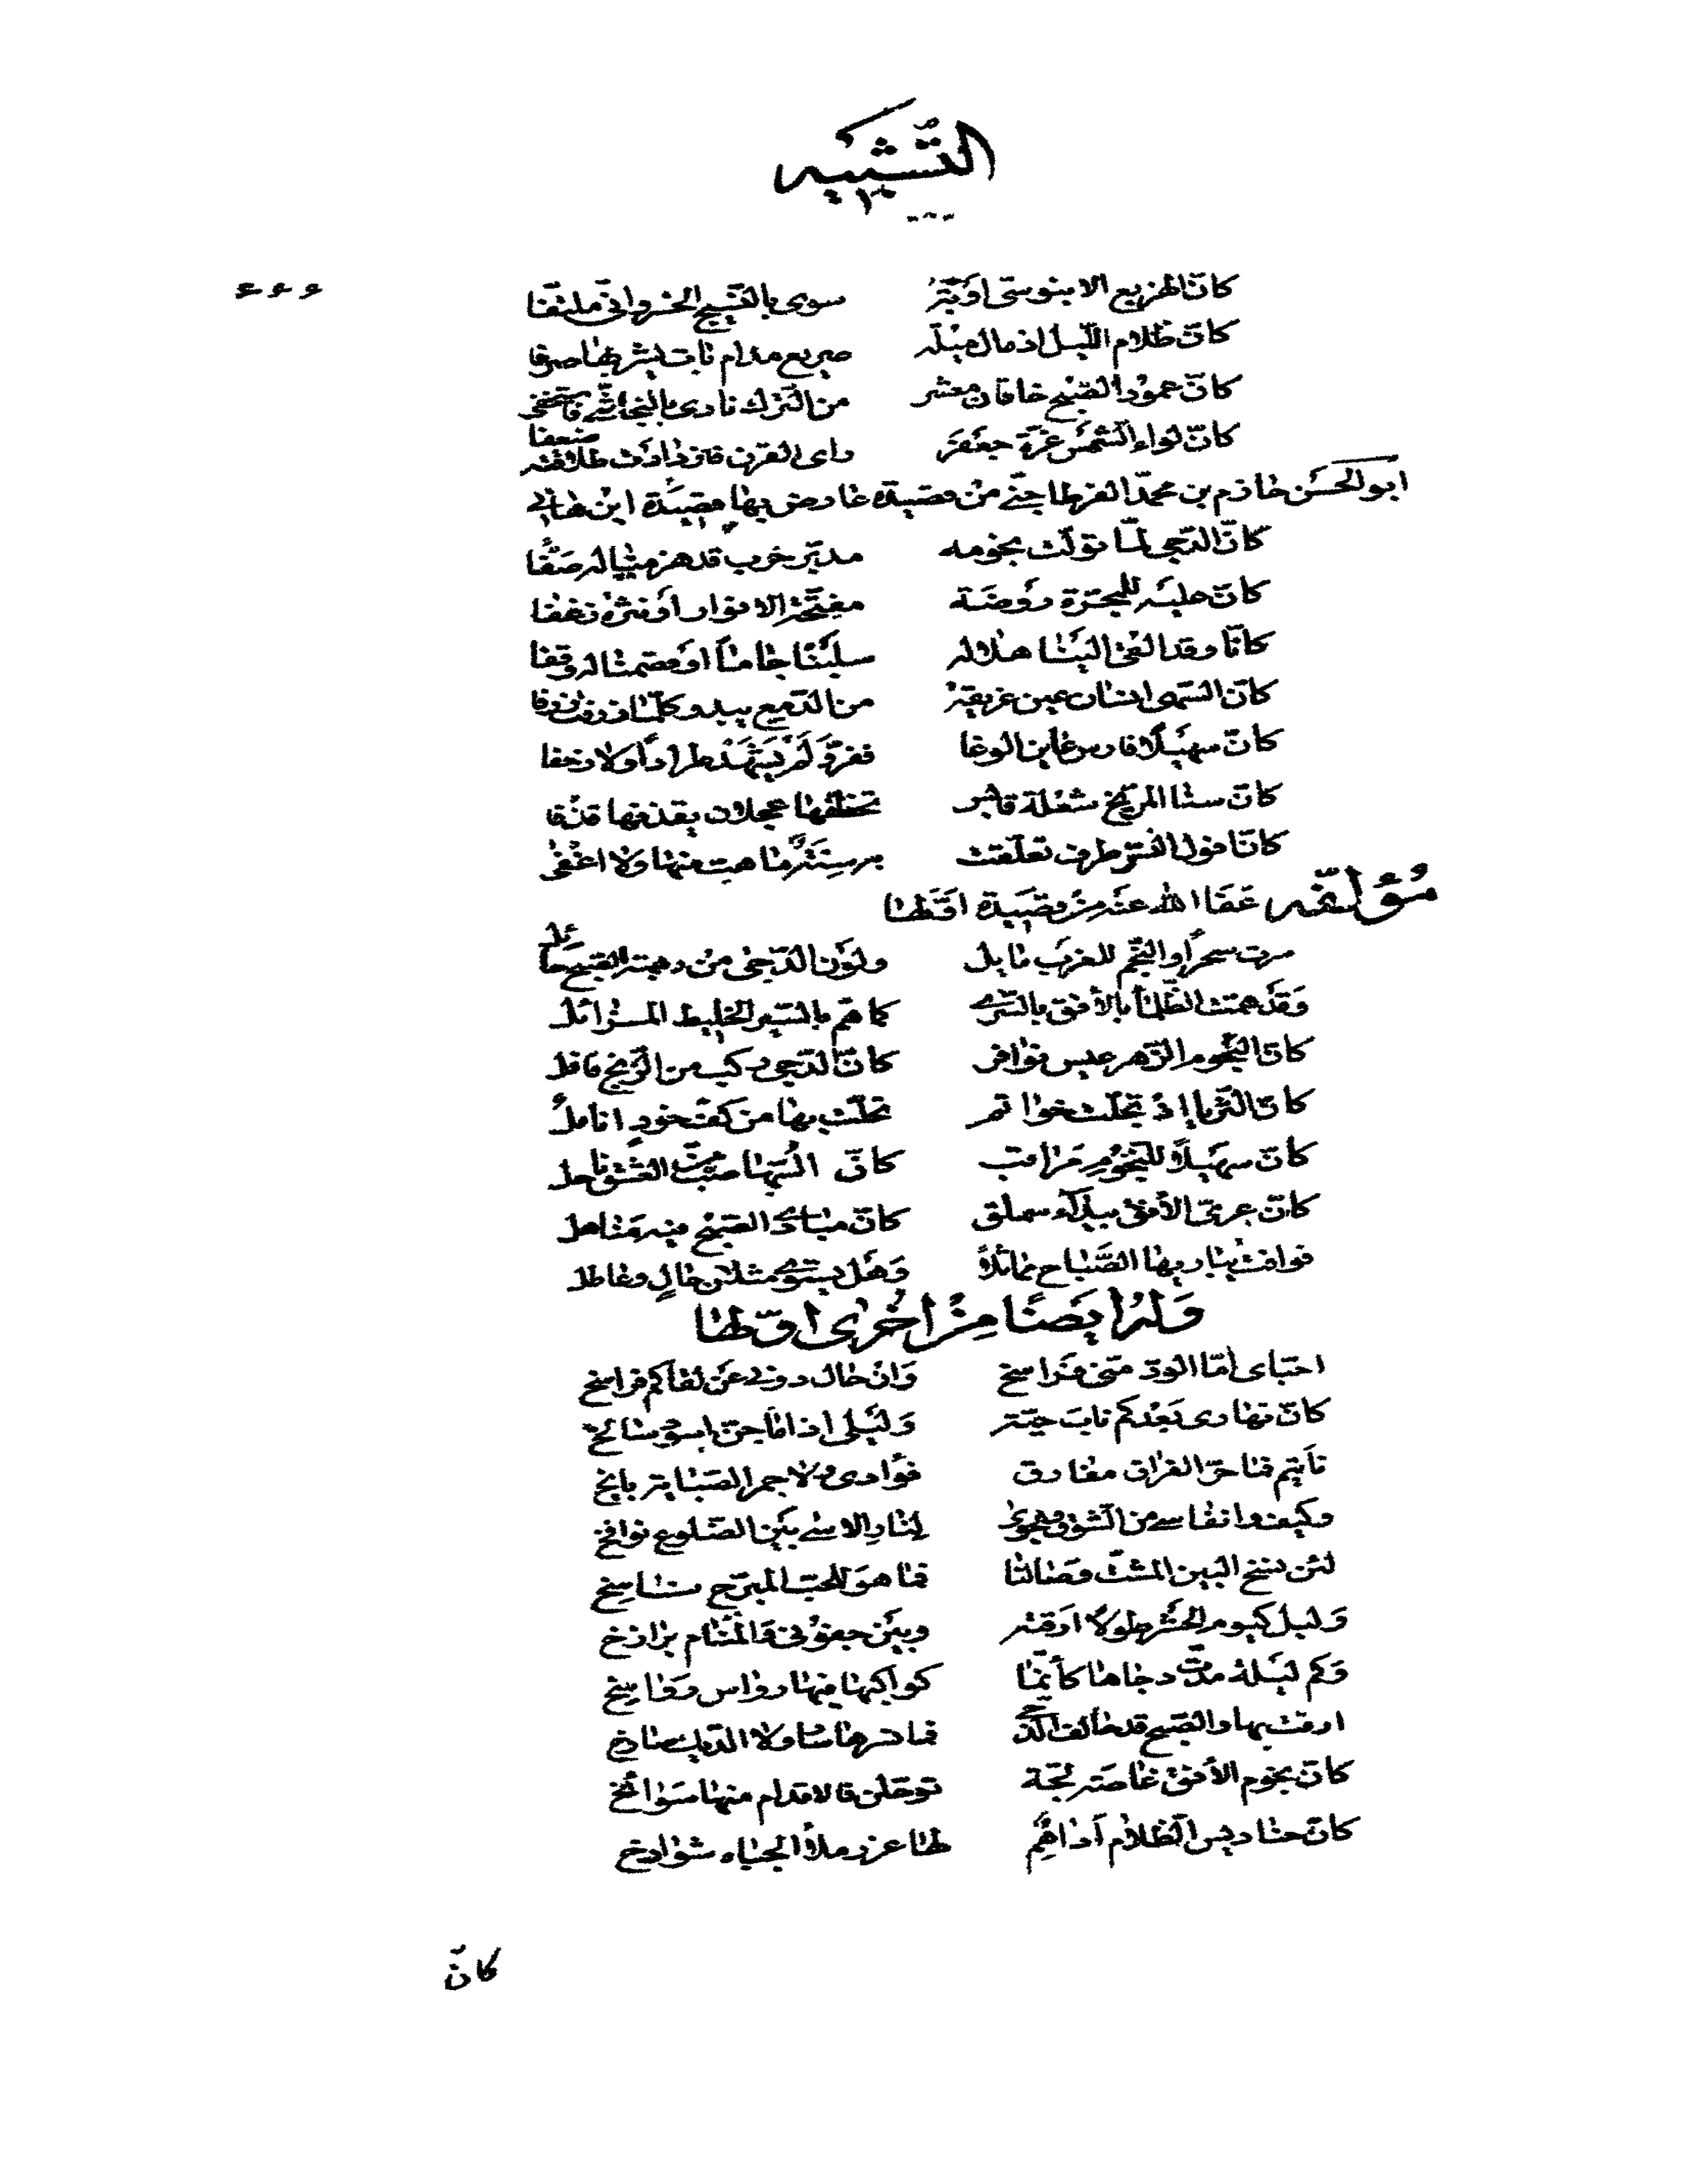 التشبيه
٤٤٤
كانّ الهزيع الابنوسي اونة سوى بالنسيج الخسرواني ملتفا
كانّ ظلام الليل اذ مال ميله صريع مدام بات يشربها صرفا
كانّ عمود الصبح خاقان معشر من الترك نادى بالنجاشي فاستخفى
كانّ لواء الشمس غرّة جعفر راى القرن فازدادت طلاقته ضعفا
ابو الحسن حازم بن محمد القرطاجني من قصيدة عارض بها قصيدة ابن هاني
كانّ الدجى لمّا تولّت نجومه مدبّر حرب قد هزمنا له صفّا
كانّ عليه للمجرّة روضة مفتّحة الانوار او نثرة زغفا
كانّا وقد القى الينا هلاله سلبنا جاما او فصمنا له وقفا
كانّ السهى انسان عين غريقة من الدمع يبدو كلّما ذرفت ذرفا
كانّ سهيلًا فارس عاين الوغا ففرّ ولم يشهد طرادًا ولا زحفا
كانّ سنا المريخ شعلة قابس تخطّفها عجلان يقذفها قذفا
كانّ افول النسر طرف تعلّقت به سنة ما هب منها ولا اغفى
مؤلفه عفا الله عنه من قصيدة اوّلها
سرت سحرًا والنجم للغرب مايل ولون الدجى من رهبة الصبح حائل
وقد همّت الظلما بالأفق بالسرى كما همّ بالسير الخليط المزائل
كانّ النجوم الزهر عيس نوافر كانّ الدجى ركب من الزنج قافل
كانّ الثريا إذ تجلّت خواتم تحلّت بها من كف خود انامل
كانّ سهيلًا للنجوم مراقب كانّ السها صبّ من العشق ناحل
كانّ عريّ الأفق بيداء سملق كانّ مبادى الصبح فيه مناهل
فوافت يباريها الصباح مماثلا وهل يستوى مثلان حالٍ وعاطل
وله ايضًا من اخرى اوّلها
احبّاى امّا الودّ منّى فراسخ وان حال دونى عن لقاكم فراسخ
كانّ نهارى بعدكم ناب حيّة وليلى اذا ما جنّ اسود سالخ
نأيتم فما حرّ الفراق مفارق فؤادى ولا جمر الصبابة بايخ
وكيف وانفاسى من الشوق والجوى لنار الاسى بين الضلوع نوافخ
لئن نسخ البين المشتّ وصالنا فما هو للحب المبرّح ناسخ
وليل كيوم الحشر طولًا ارقته وبين جفونى والمنام برازخ
وكم ليلة مدّت دجاها كأنّما كواكبها فيها رواس رواسخ
ارقت بها والصبح قد حالف الدجى فما نسرها سار ولا الديك صارخ
كانّ نجوم الأفق غاصت بلجّة توحّلن فالاقدام منها سوائخ
كانّ حناديس الظلام اداهم لها غرر ملأ الجباه شوادخ
كانّ